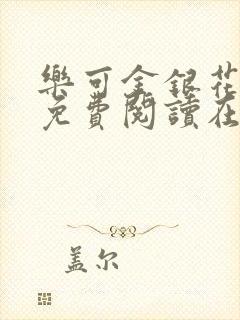 樂可金銀花
免費閱讀在
盖尔